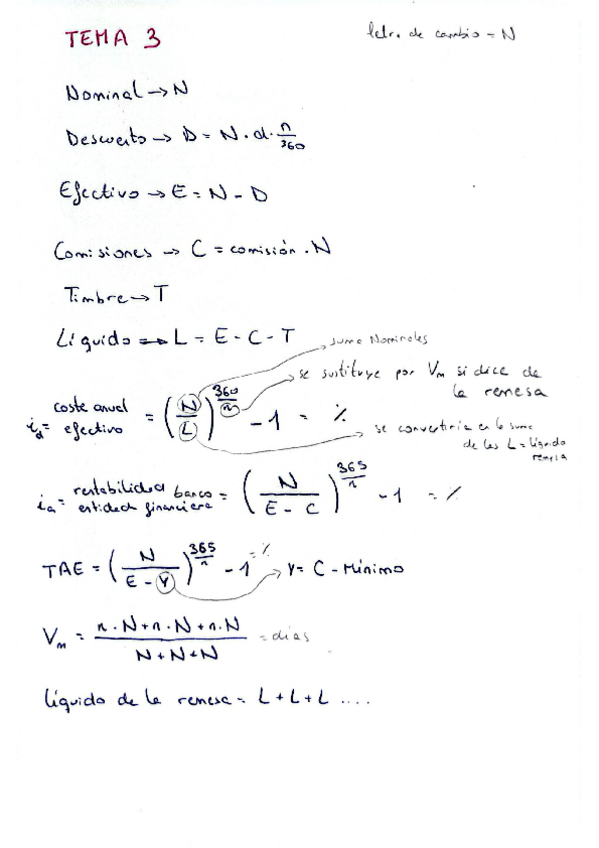 TEMA 3
letra de cambio = N
Nominal → N
Descuento → D = N · d · n/360
Efectivo → E = N - D
Comisiones → C = comisión . N
Timbre → T
Líquido → L = E - C - T
suma Nominales
se sustituye por Vm si dice de la remesa
ia = coste anual efectivo = (N/L)^(360/n) - 1 = %
se convertiría en la suma de las L = líquido remesa
ia = rentabilidad banco entidad financiera = (N/(E - C))^(365/n) - 1 = %
TAE = (N/(E - Y))^(365/n) - 1 = % → Y = C - Mínimo
Vm = (n · N + n · N + n · N)/(N + N + N) = días
líquido de la remesa = L + L + L ....